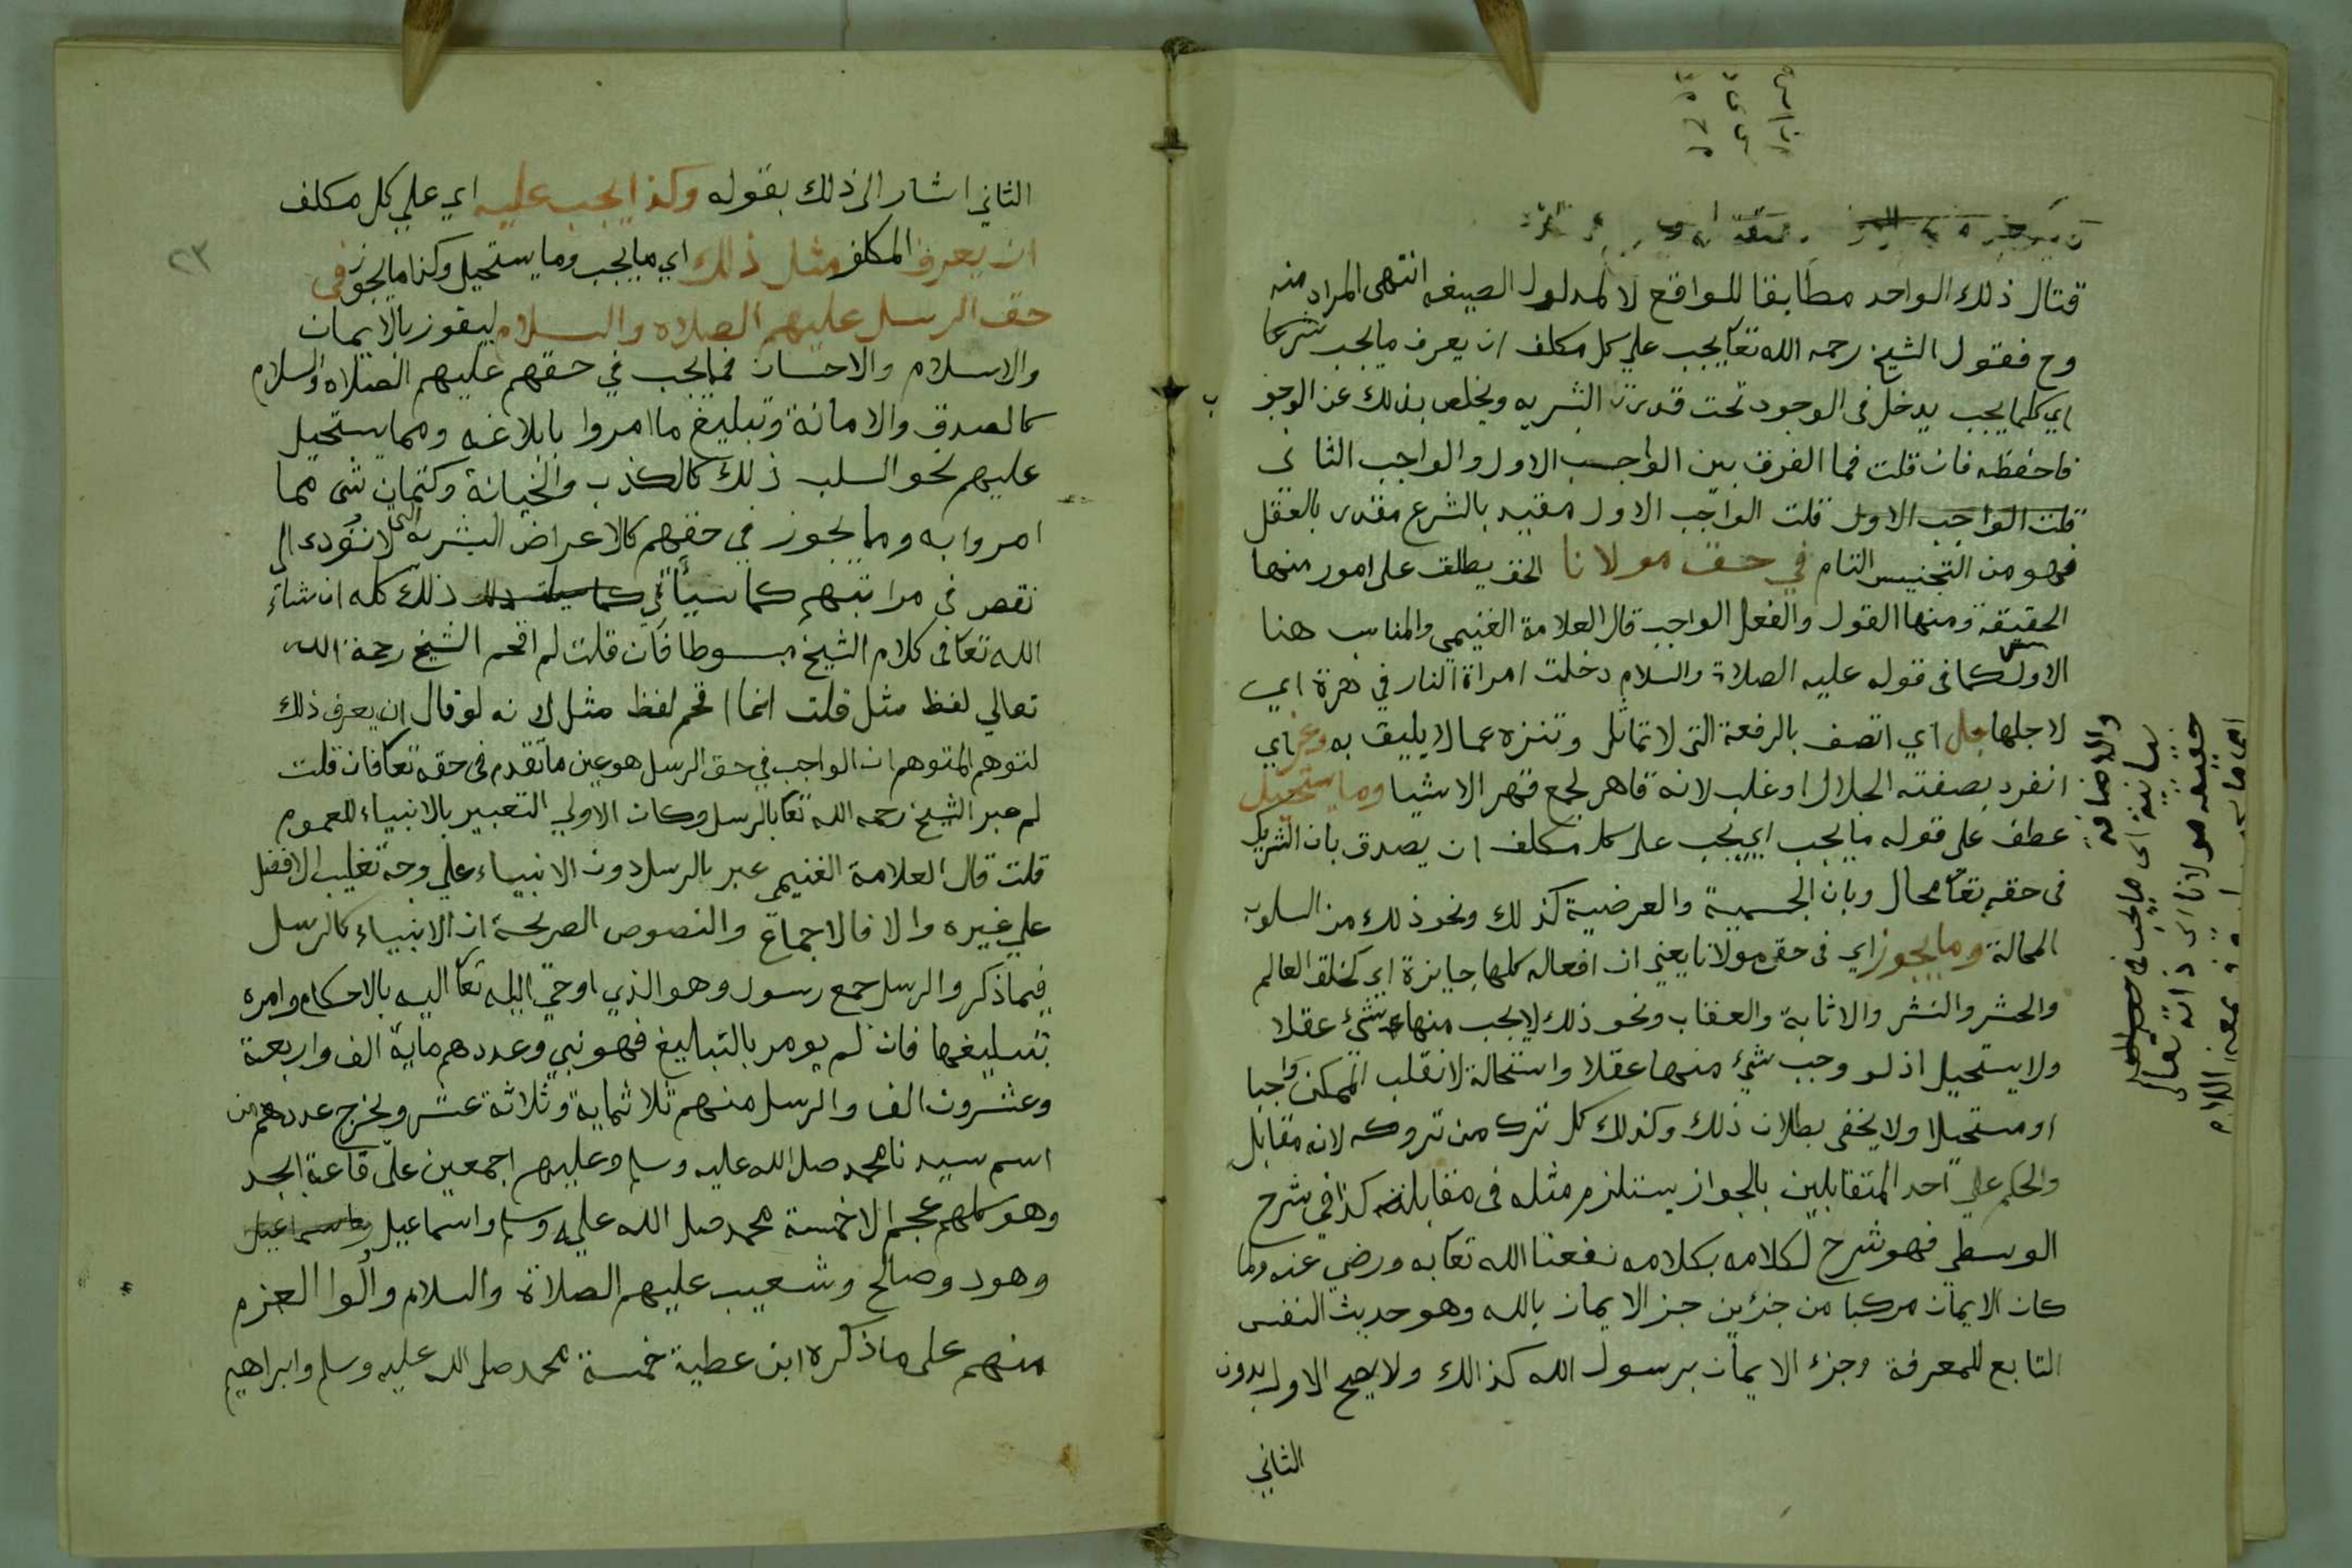 قتال ذلك الواحد مطابقا للواقع لا لمدلول الصيغه انتهى المراد منه
وح فقول الشيخ رحمه الله تعا يجب علي كل مكلف ان يعرف ما يجب شرعا
اي كلما يجب يدخل فى الوجود تحت قدرت البشريه ويخلص بذلك عن الوجو ب
فاحفظه فان قلت فما الفرق بين الواجب الاول والواجب الثاني
قلت الواجب الاول قلت الواجب الاول مقيد بالشرع مقدر بالعقل
فهو من التجنيس التام في حق مولانا الحق يطلق على امور منها
الحقيقة ومنها القول والفعل الواجب قال العلامة الغنيمي والمناسب هنا
الاول كما فى قوله عليه الصلاة والسلام دخلت امراة النار في هرة اي
لاجلها جل اي اتصف بالرفعة التى لا تماثل وتنزه عما لا يليق به وعز اي
انفرد بصفته الجلال او غلب لانه قاهر لجمع قهر الاشيا وما يستحيل
عطف على قوله ما يجب اي يجب على كل مكلف ان يصدق بان الشريك
فى حقه تعا محال وبان الجسمية والعرضية كذلك ونحو ذلك من السلوب
المحالة وما يجوز اي فى حق مولانا يعني ان افعاله كلها جايزة اي كخلق العالم
والحشر والنشر والاثابة والعقاب ونحو ذلك لا يجب منها شئ عقلا
ولا يستحيل اذ لو وجب شئ منها عقلا واستحالة لانقلب الممكن واجبا
او مستحيلا ولا يخفى بطلان ذلك وكذلك كل ترك من تروكه لانه مقابل
والحكم علي احد المتقابلين بالجواز يستلزم مثله فى مقابلته كذا في شرح
الوسطي فهو شرح لكلامه بكلامه نفعنا الله تعا به ورضي عنه ولما
كان الايمان مركبا من جزئين جز الايمان بالله وهو حديث النفس
التابع للمعرفة وجزء الايمان برسول الله كذالك ولا يصح الاول بدون
الثاني
والاضافة
بيانية اى ما يجب فى
حقيقه مولانا اى ذاته تعالى
٢٣
الثاني اشار الى ذلك بقوله وكذا يجب عليه اي علي كل مكلف
ان يعرف المكلف مثل ذلك اي ما يجب وما يستحيل وكذا ما يجوز فى
حق الرسل عليهم الصلاه والسلام ليفوز بالايمان
والاسلام والاحسان فما يجب في حقهم عليهم الصلاه والسلام
كالصدق والامانة وتبليغ ما امروا بابلاغه ومما يستحيل
عليهم نحو السلب ذلك كالكذب والخيانة وكتمان شى مما
امروا به وما يجوز في حقهم كالاعراض البشريه التى لا تؤدى الى
نقص في مراتبهم كما سيأتي ذلك كله ان شاء
الله تعا فى كلام الشيخ مبسوطا فان قلت لم اقحم الشيخ رحمة الله
تعالي لفظ مثل قلت انما اقحم لفظ مثل لانه لو قال ان يعرف ذلك
لتوهم المتوهم ان الواجب في حق الرسل هو عين ما تقدم فى حقه تعا فان قلت
لم عبر الشيخ رحمه الله تعا بالرسل وكان الاولي التعبير بالانبياء للعموم
قلت قال العلامة الغنيمي عبر بالرسل دون الانبياء علي وجه تغليب الافضل
علي غيره والا فالاجماع والنصوص الصريحة ان الانبياء كالرسل
فيما ذكر والرسل جمع رسول وهو الذي اوحي الله تعا اليه بالاحكام وامره
بتبليغها فان لم يومر بالتبليغ فهو نبي وعددهم ماية الف واربعة
وعشرون الف والرسل منهم ثلاثماية وثلاثة عشر ويخرج عددهم من
اسم سيدنا محمد صلى الله عليه وسلم وعليهم اجمعين على قاعة ابجد
وهو كلهم عجم الا خمسة محمد صلى الله عليه وسلم واسماعيل واسماعيل
وهود وصالح وشعيب عليهم الصلاة والسلام وألوا العزم
منهم على ما ذكره ابن عطية خمسة محمد صلى الله عليه وسلم وابراهيم